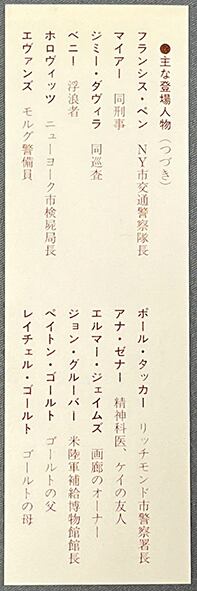 ●主な登場人物(つづき)
フランシス・ペン　NY市交通警察隊長
マイアー　同刑事
ジミー・ダヴィラ　同巡査
ベニー　浮浪者
ホロヴィッツ　ニューヨーク市検屍局長
エヴァンズ　モルグ警備員
ポール・タッカー　リッチモンド市警察署長
アナ・ゼナー　精神科医、ケイの友人
エルマー・ジェイムズ　画廊のオーナー
ジョン・グルーバー　米陸軍補給博物館館長
ペイトン・ゴールト　ゴールトの父
レイチェル・ゴールト　ゴールトの母